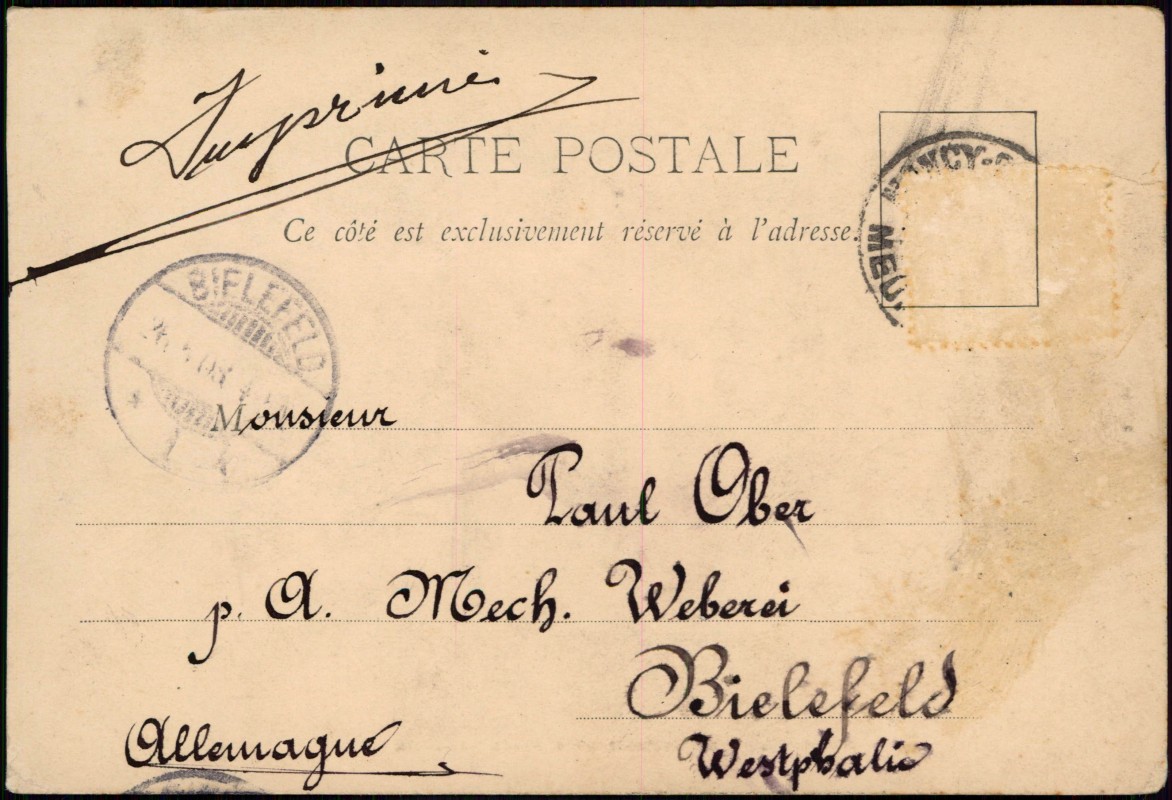 Imprimé
CARTE POSTALE
Ce côté est exclusivement réservé à l'adresse.
BIELEFELD
Monsieur
Paul Ober
p. A. Mech. Weberei
Bielefeld
Westphalie
Allemagne